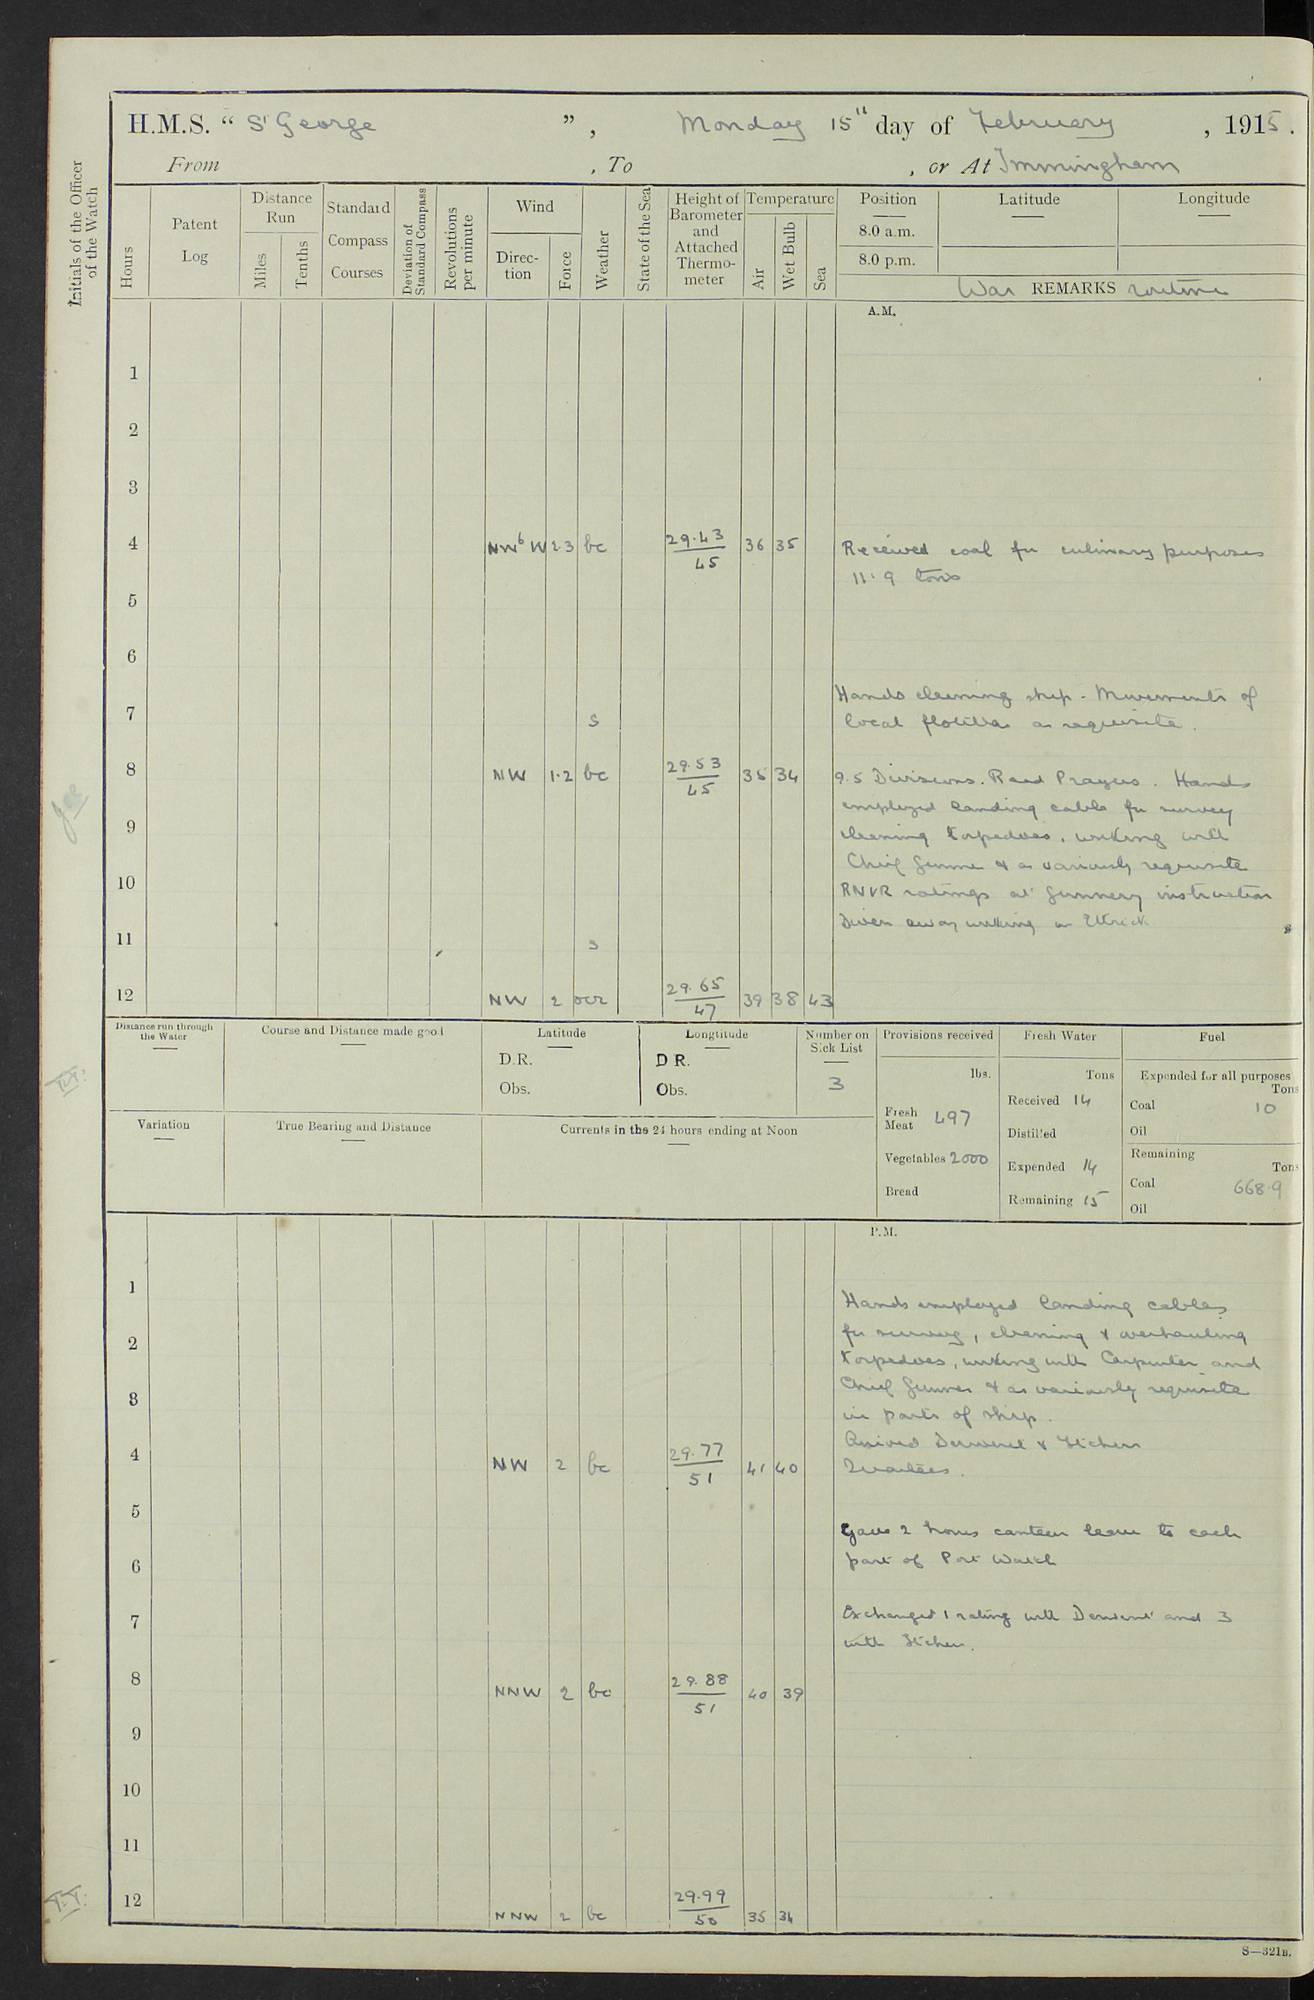 H.M.S. “ St George ” , Monday 15th day of February , 1915.
From , To , or At Immingham
Initials of the Officer
of the Watch
Hours
Patent
Log
Distance
Run
Miles
Tenths
Standard
Compass
Courses
Deviation of
Standard Compass
Revolutions
per minute
Wind
Direc-
tion
Force
Weather
State of the Sea
Height of
Barometer
and
Attached
Thermo-
meter
Temperature
Air
Wet Bulb
Sea
Position
8.0 a.m.
8.0 p.m.
Latitude
Longitude
War REMARKS routine
A.M.
1
2
3
4 NWbW 2.3 bc 29.43 36 35 Received coal for culinary purposes
45
11.9 tons
5
6
Hands cleaning ship - Movements of
7 s local flotillas as requisite.
8 NW 1.2 bc 29.53 35 34 9.5 Divisions. Read Prayers. Hands
45
employed landing cable for survey
9 cleaning torpedoes, working with
Chief Gunner & as variously requisite
10 RNVR ratings at Gunnery instruction
Divers away working on
11 s
12 NW 2 ocr 29.65 39 38 43
47
Distance run through
the Water
Course and Distance made good
Latitude
D.R.
Obs.
Longtitude
D R.
Obs.
Number on
Sick List
3
Provisions received
lbs.
Fresh
Meat 497
Vegetables 2000
Bread
Fresh Water
Tons
Received 14
Distilled
Expended 14
Remaining 15
Fuel
Expended for all purposes
Tons
Coal 10
Oil
Remaining
Tons
Coal 668.9
Oil
Variation
True Bearing and Distance
Currents in the 24 hours ending at Noon
P.M.
1
Hands employed landing cables
2 for survey, cleaning & overhauling
torpedoes, working with Carpenter and
3 Chief Gunner & as variously requisite
in parts of ship.
4 NW 2 bc 29.77 41 40 Arrived Derwent & Itchen
51
Quarters.
5
Gave 2 hours canteen leave to each
6 part of Port Watch
7 Exchanged 1 rating with Derwent and 3
with Itchen.
8 NNW 2 bc 29.88 40 39
51
9
10
11
12 NNW 2 bc 29.99 35 34
50
S—321B.